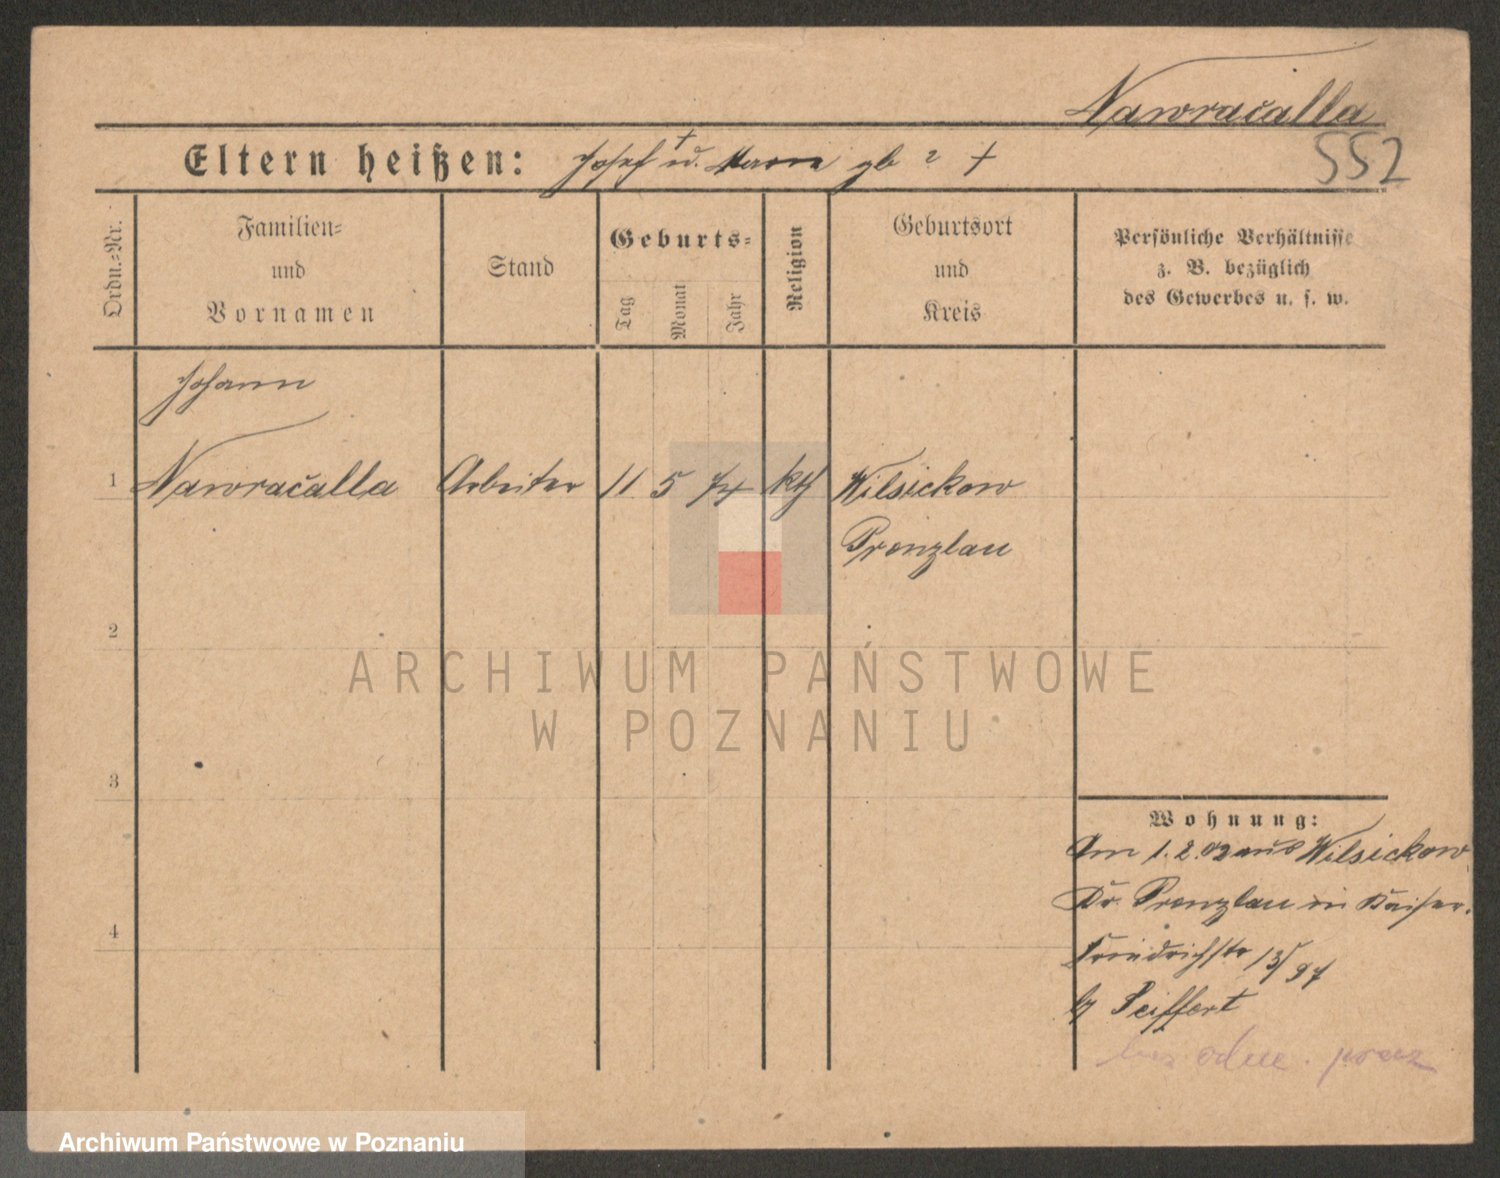 Nawračalla
552
Eltern heißen: Josef † u. Maria gb ? †
Ordn.-Nr.
Familien- und Vornamen
Stand
Geburts-
Tag
Monat
Jahr
Religion
Geburtsort und Kreis
Persönliche Verhältnisse
z. B. bezüglich
des Gewerbes u. s. w.
Johann
1 Nawračalla Arbeiter 11 5 74 kth Wilsickow
Prenzlau
2
3
4
Wohnung:
Am 1.2.02 aus Wilsickow
Kr. Prenzlau in Kaiser.
Friedrichstr 13/97
b/ Seiffert
ARCHIWUM PAŃSTWOWE
W POZNANIU
Archiwum Państwowe w Poznaniu